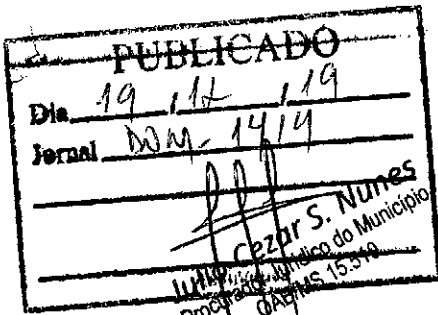 PUBLICADO
Dia 19 / 12 / 19
Jornal DOM - 1419
Julio Cezar S. Nunes
Procurador Jurídico do Município
OAB/MS 15.510